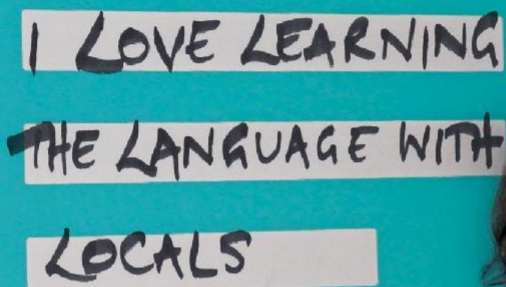 I LOVE LEARNING
THE LANGUAGE WITH
LOCALS